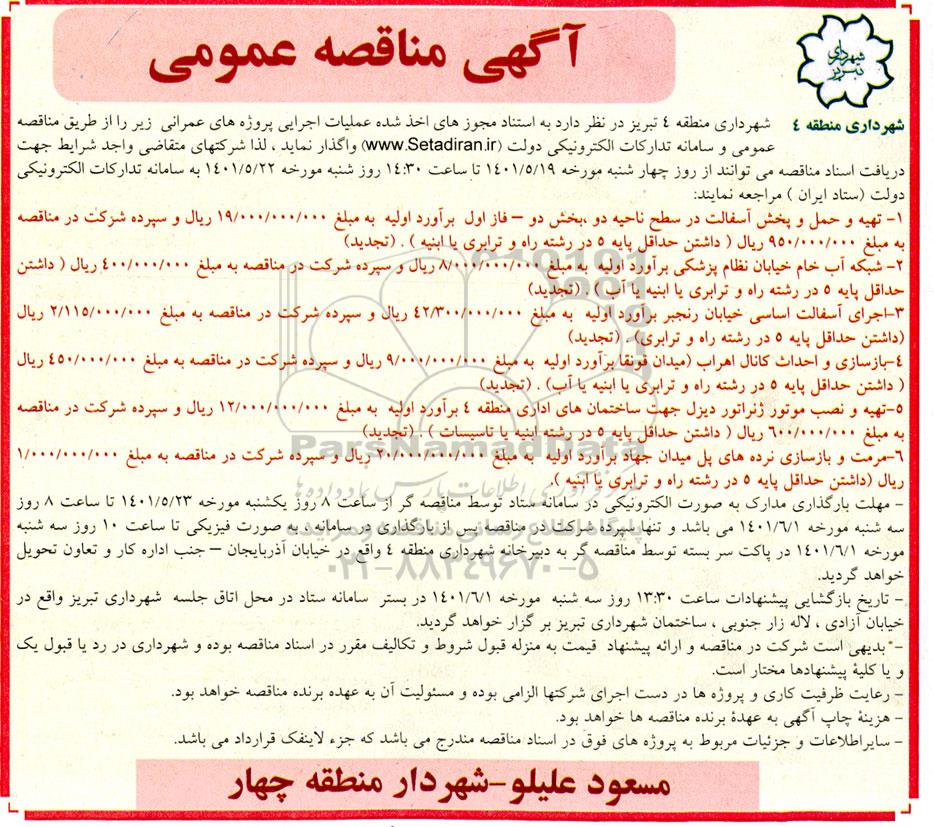 آگهی مناقصه عمومی
شهرداری تبریز
شهرداری منطقه ۴
شهرداری منطقه ۴ تبریز در نظر دارد به استناد مجوز های اخذ شده عملیات اجرایی پروژه های عمرانی زیر را از طریق مناقصه
عمومی و سامانه تدارکات الکترونیکی دولت (www.Setadiran.ir) واگذار نماید ، لذا شرکتهای متقاضی واجد شرایط جهت
دریافت اسناد مناقصه می توانند از روز چهار شنبه مورخه ۱۴۰۱/۵/۱۹ تا ساعت ۱۴:۳۰ روز شنبه مورخه ۱۴۰۱/۵/۲۲ به سامانه تدارکات الکترونیکی
دولت (ستاد ایران ) مراجعه نمایند:
۱- تهیه و حمل و پخش آسفالت در سطح ناحیه دو ،بخش دو – فاز اول برآورد اولیه به مبلغ ۱۹/۰۰۰/۰۰۰/۰۰۰ ریال و سپرده شرکت در مناقصه
به مبلغ ۹۵۰/۰۰۰/۰۰۰ ریال ( داشتن حداقل پایه ۵ در رشته راه و ترابری یا ابنیه ) . (تجدید)
۲- شبکه آب خام خیابان نظام پزشکی برآورد اولیه به مبلغ ۸/۰۰۰/۰۰۰/۰۰۰ ریال و سپرده شرکت در مناقصه به مبلغ ۴۰۰/۰۰۰/۰۰۰ ریال ( داشتن
حداقل پایه ۵ در رشته راه و ترابری یا ابنیه یا آب ) . (تجدید)
۳-اجرای آسفالت اساسی خیابان رنجبر برآورد اولیه به مبلغ ۴۲/۳۰۰/۰۰۰/۰۰۰ ریال و سپرده شرکت در مناقصه به مبلغ ۲/۱۱۵/۰۰۰/۰۰۰ ریال
(داشتن حداقل پایه ۵ در رشته راه و ترابری) . (تجدید)
۴-بازسازی و احداث کانال اهراب (میدان قونقا برآورد اولیه به مبلغ ۹/۰۰۰/۰۰۰/۰۰۰ ریال و سپرده شرکت در مناقصه به مبلغ ۴۵۰/۰۰۰/۰۰۰ ریال
( داشتن حداقل پایه ۵ در رشته راه و ترابری یا ابنیه یا آب) . (تجدید)
۵-تهیه و نصب موتور ژنراتور دیزل جهت ساختمان های اداری منطقه ۴ برآورد اولیه به مبلغ ۱۲/۰۰۰/۰۰۰/۰۰۰ ریال و سپرده شرکت در مناقصه
به مبلغ ۶۰۰/۰۰۰/۰۰۰ ریال ( داشتن حداقل پایه ۵ در رشته ابنیه یا تاسیسات ) . (تجدید)
۶-مرمت و بازسازی نرده های پل میدان جهاد برآورد اولیه به مبلغ ۲۰/۰۰۰/۰۰۰/۰۰۰ ریال و سپرده شرکت در مناقصه به مبلغ ۱/۰۰۰/۰۰۰/۰۰۰
ریال (داشتن حداقل پایه ۵ در رشته راه و ترابری یا ابنیه ).
- مهلت بارگذاری مدارک به صورت الکترونیکی در سامانه ستاد توسط مناقصه گر از ساعت ۸ روز یکشنبه مورخه ۱۴۰۱/۵/۲۳ تا ساعت ۸ روز
سه شنبه مورخه ۱۴۰۱/۶/۱ می باشد و تنها سپرده شرکت در مناقصه پس از بارگذاری در سامانه ، به صورت فیزیکی تا ساعت ۱۰ روز سه شنبه
مورخه ۱۴۰۱/۶/۱ در پاکت سر بسته توسط مناقصه گر به دبیرخانه شهرداری منطقه ۴ واقع در خیابان آذربایجان – جنب اداره کار و تعاون تحویل
خواهد گردید.
- تاریخ بازگشایی پیشنهادات ساعت ۱۳:۳۰ روز سه شنبه مورخه ۱۴۰۱/۶/۱ در بستر سامانه ستاد در محل اتاق جلسه شهرداری تبریز واقع در
خیابان آزادی ، لاله زار جنوبی ، ساختمان شهرداری تبریز بر گزار خواهد گردید.
- بدیهی است شرکت در مناقصه و ارائه پیشنهاد قیمت به منزله قبول شروط و تکالیف مقرر در اسناد مناقصه بوده و شهرداری در رد یا قبول یک
و یا کلیۀ پیشنهادها مختار است.
- رعایت ظرفیت کاری و پروژه ها در دست اجرای شرکتها الزامی بوده و مسئولیت آن به عهده برنده مناقصه خواهد بود.
- هزینۀ چاپ آگهی به عهدۀ برنده مناقصه ها خواهد بود.
- سایراطلاعات و جزئیات مربوط به پروژه های فوق در اسناد مناقصه مندرج می باشد که جزء لاینفک قرارداد می باشد.
مسعود علیلو-شهردار منطقه چهار
ParsNamadData
۰۲۱-۸۸۳۴۹۶۷۰-۵